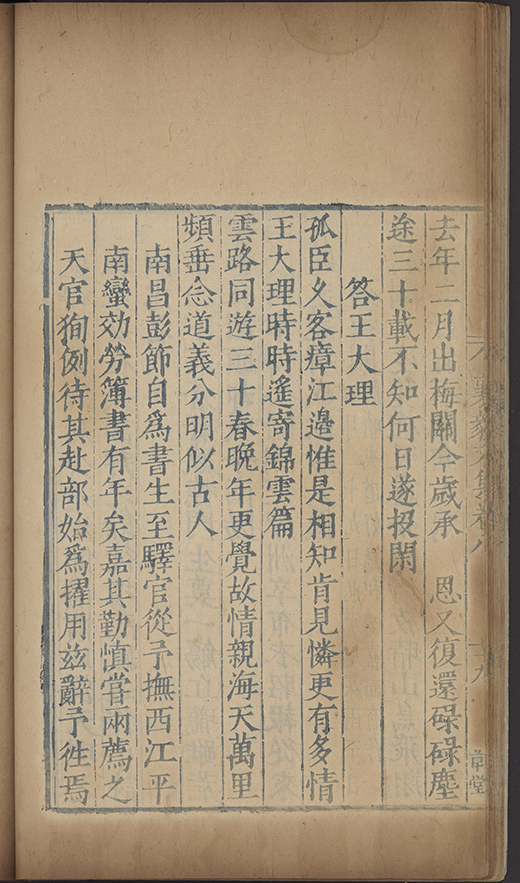 去年二月出梅關今歲承 恩又復還碌碌塵
途三十載不知何日遂投閑
答王大理
孤臣久客瘴江邊惟是相知肯見憐更有多情
王大理時時遙寄錦雲篇
雲路同遊三十春晚年更覺故情親海天萬里
頻垂念道義分明似古人
南昌彭節自為書生至驛官從予撫西江平
南蠻効勞簿書有年矣嘉其勤慎嘗兩薦之
天官狥例待其赴部始爲擢用兹辭予徃焉
集卷八
十九
草堂